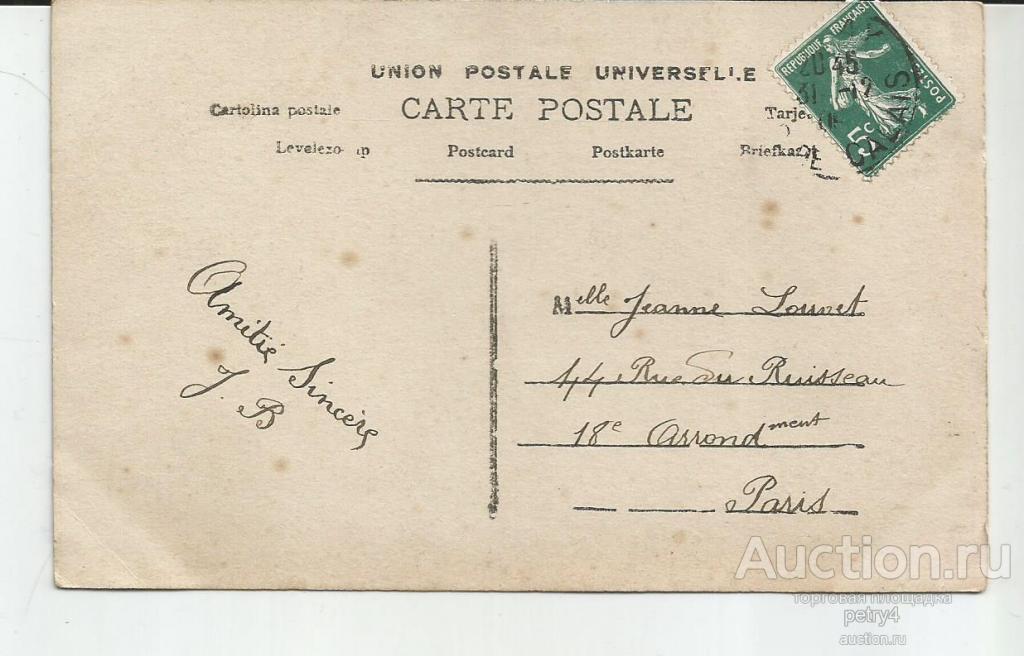 UNION POSTALE UNIVERSELLE
CARTE POSTALE
Cartolina postale
Levelezo
Postcard
Postkarte
Briefkaart
REPUBLIQUE FRANÇAISE
POSTES
5c
20 45
31 -12
DE CALAIS
Amitié Sincère
J. B
Melle Jeanne Louvet
44 Rue Du Ruisseau
18e Arrondment
Paris
Auction.ru
торговая площадка
petry4
auction.ru